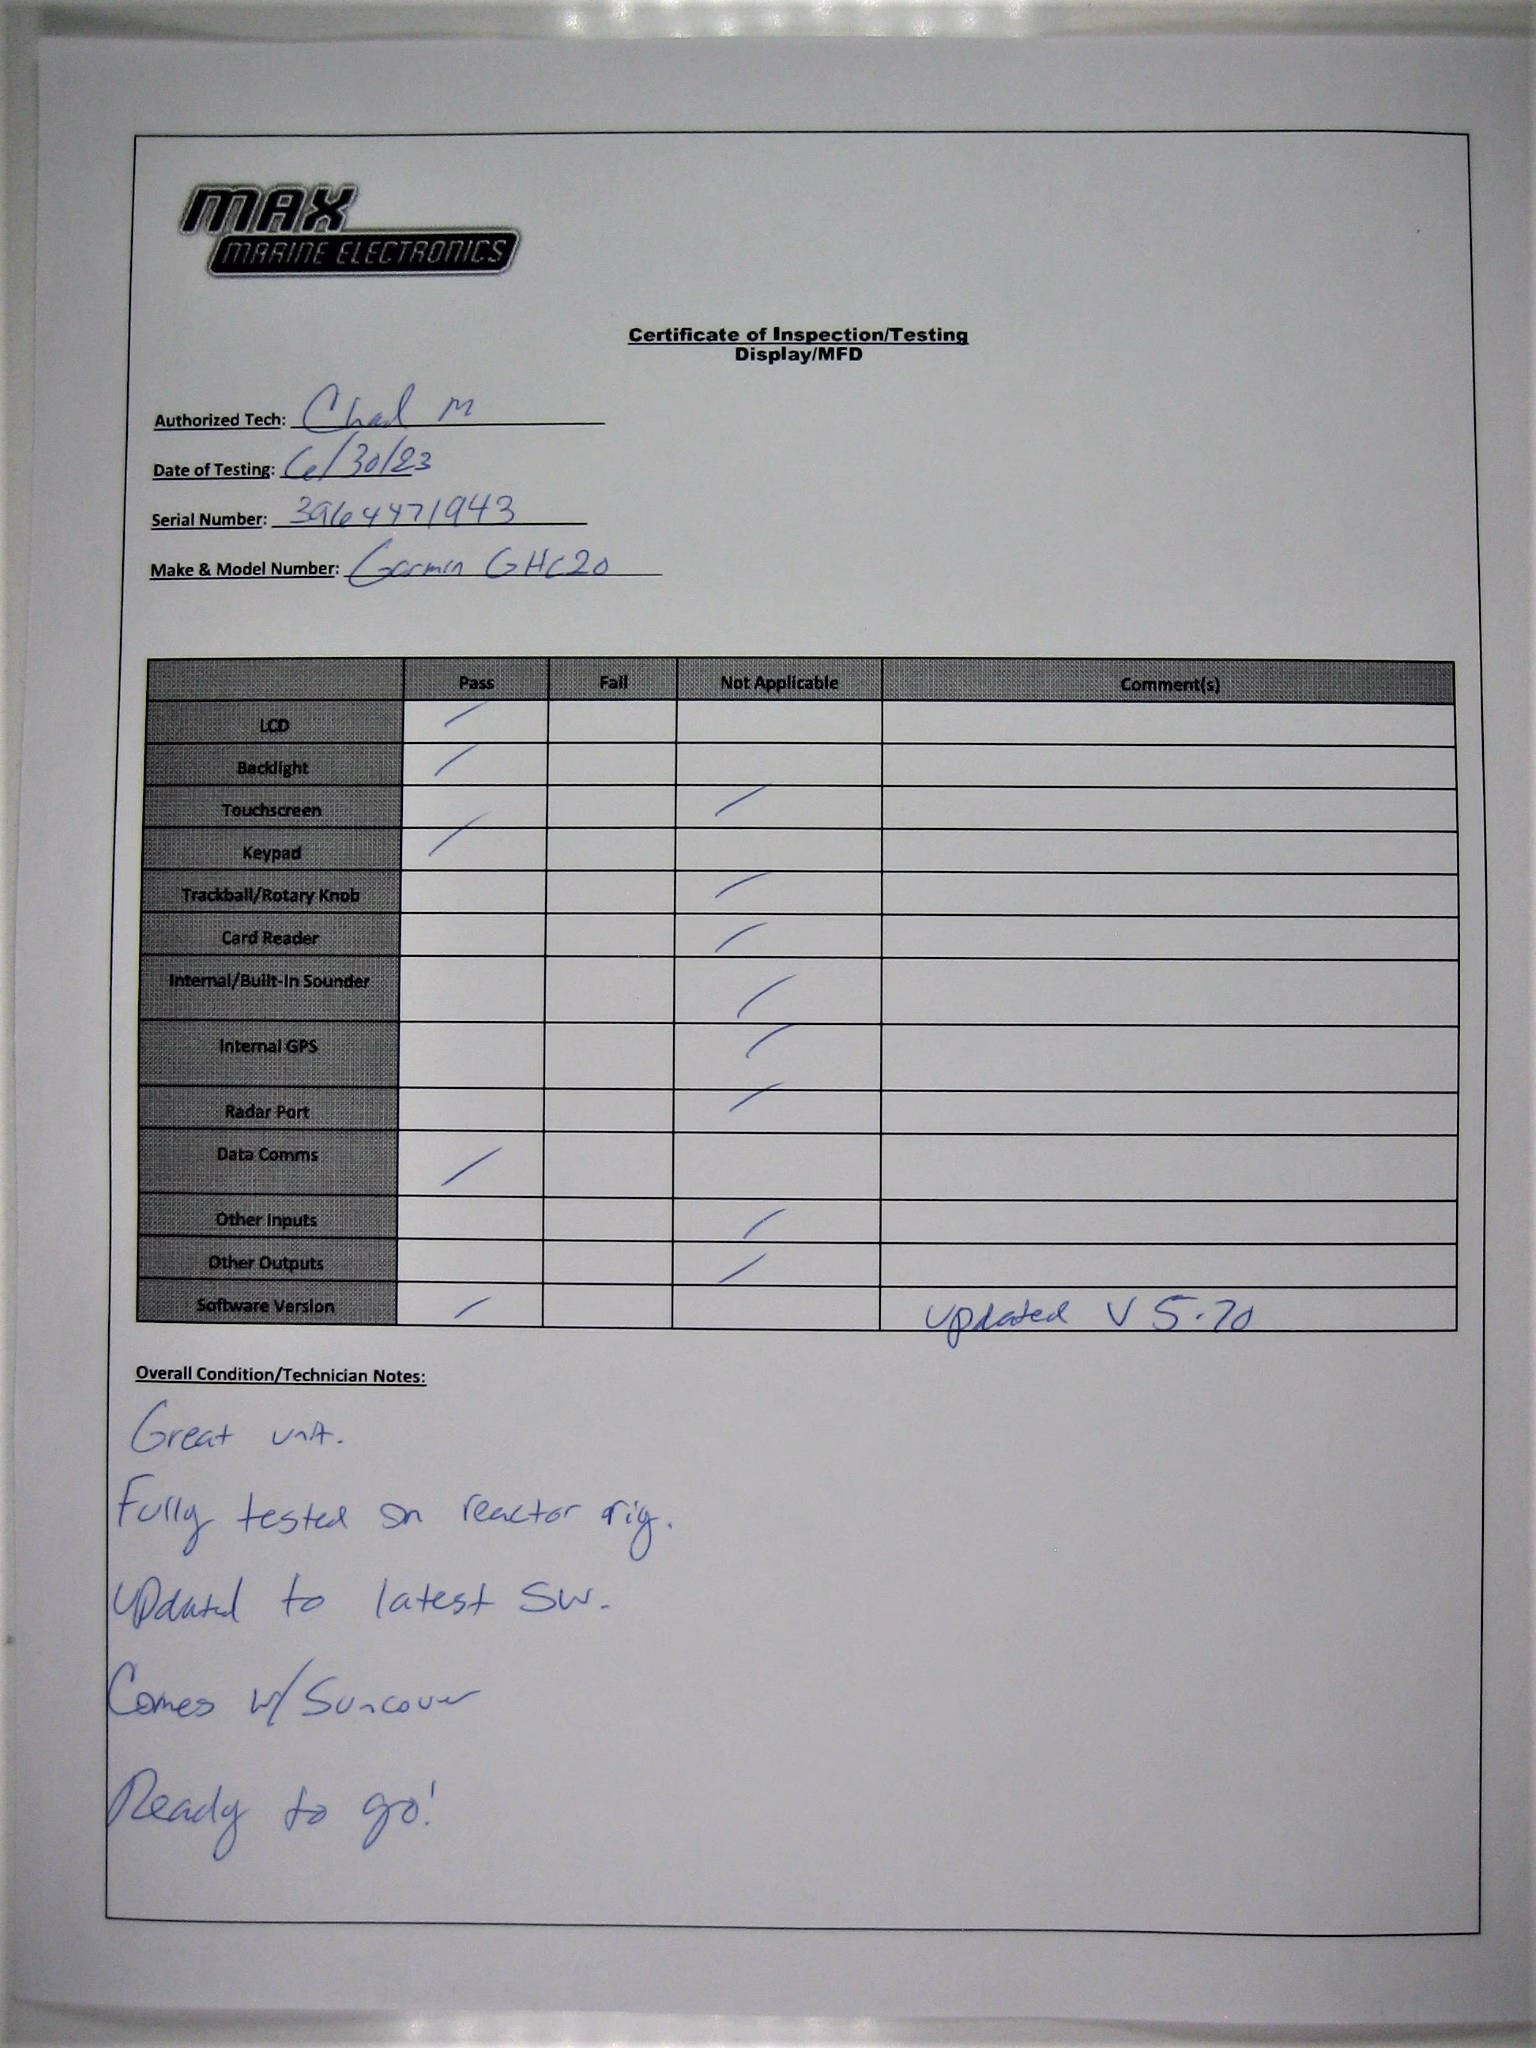 MAX
MARINE ELECTRONICS
Certificate of Inspection/Testing
Display/MFD
Authorized Tech: Chad M
Date of Testing: 6/30/23
Serial Number: 3964471943
Make & Model Number: Garmin GHC20
Pass Fail Not Applicable Comment(s)
LCD /
Backlight /
Touchscreen /
Keypad /
Trackball/Rotary Knob /
Card Reader /
Internal/Built-In Sounder /
Internal GPS /
Radar Port /
Data Comms /
Other Inputs /
Other Outputs /
Software Version / updated V 5.70
Overall Condition/Technician Notes:
Great unit.
Fully tested on reactor rig.
Updated to latest SW.
Comes w/ Suncover
Ready to go!